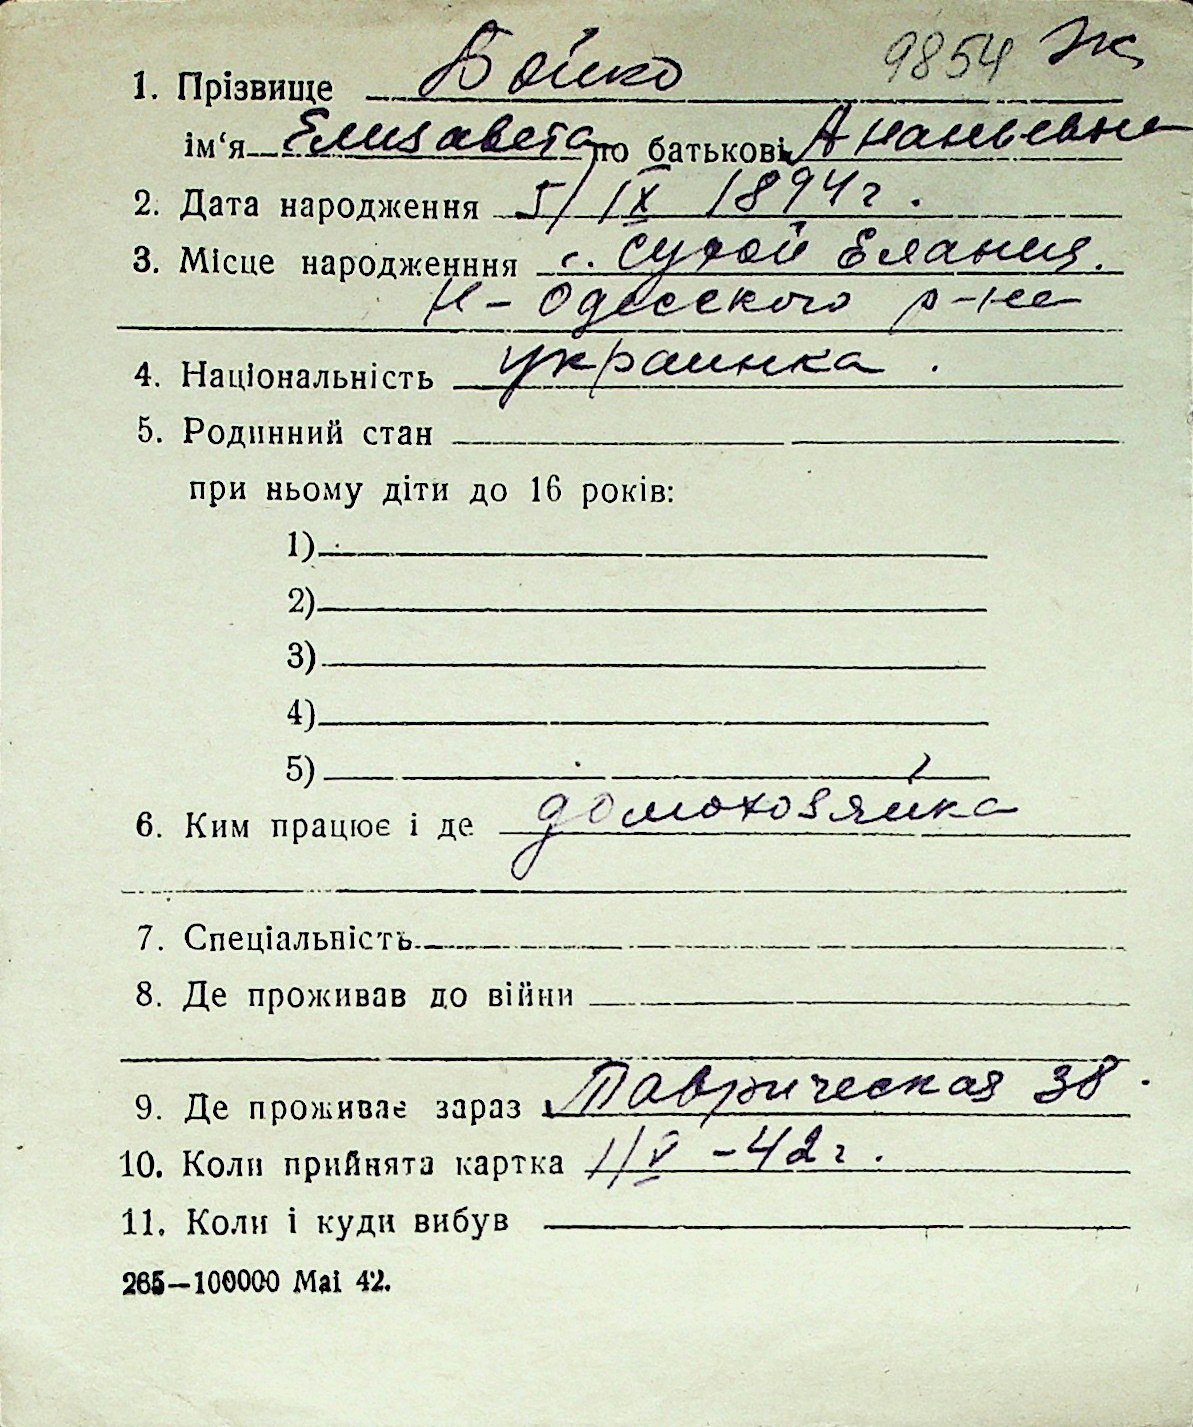 9854 Ж
1. Прізвище Бойко
ім‘я Елизавета по батькові Ананьевна
2. Дата народження 5/IX 1894 г.
3. Місце народженння с. Сухой Еланец.
Н-Одесского р-на
4. Національність украинка.
5. Родинний стан
при ньому діти до 16 років:
1)
2)
3)
4)
5)
6. Ким працює і де домохозяйка
7. Спеціальність
8. Де проживав до війни
9. Де проживає зараз Таврическая 38.
10. Коли прийнята картка 1/V -42 г.
11. Коли і куди вибув
265—100000 Mai 42.